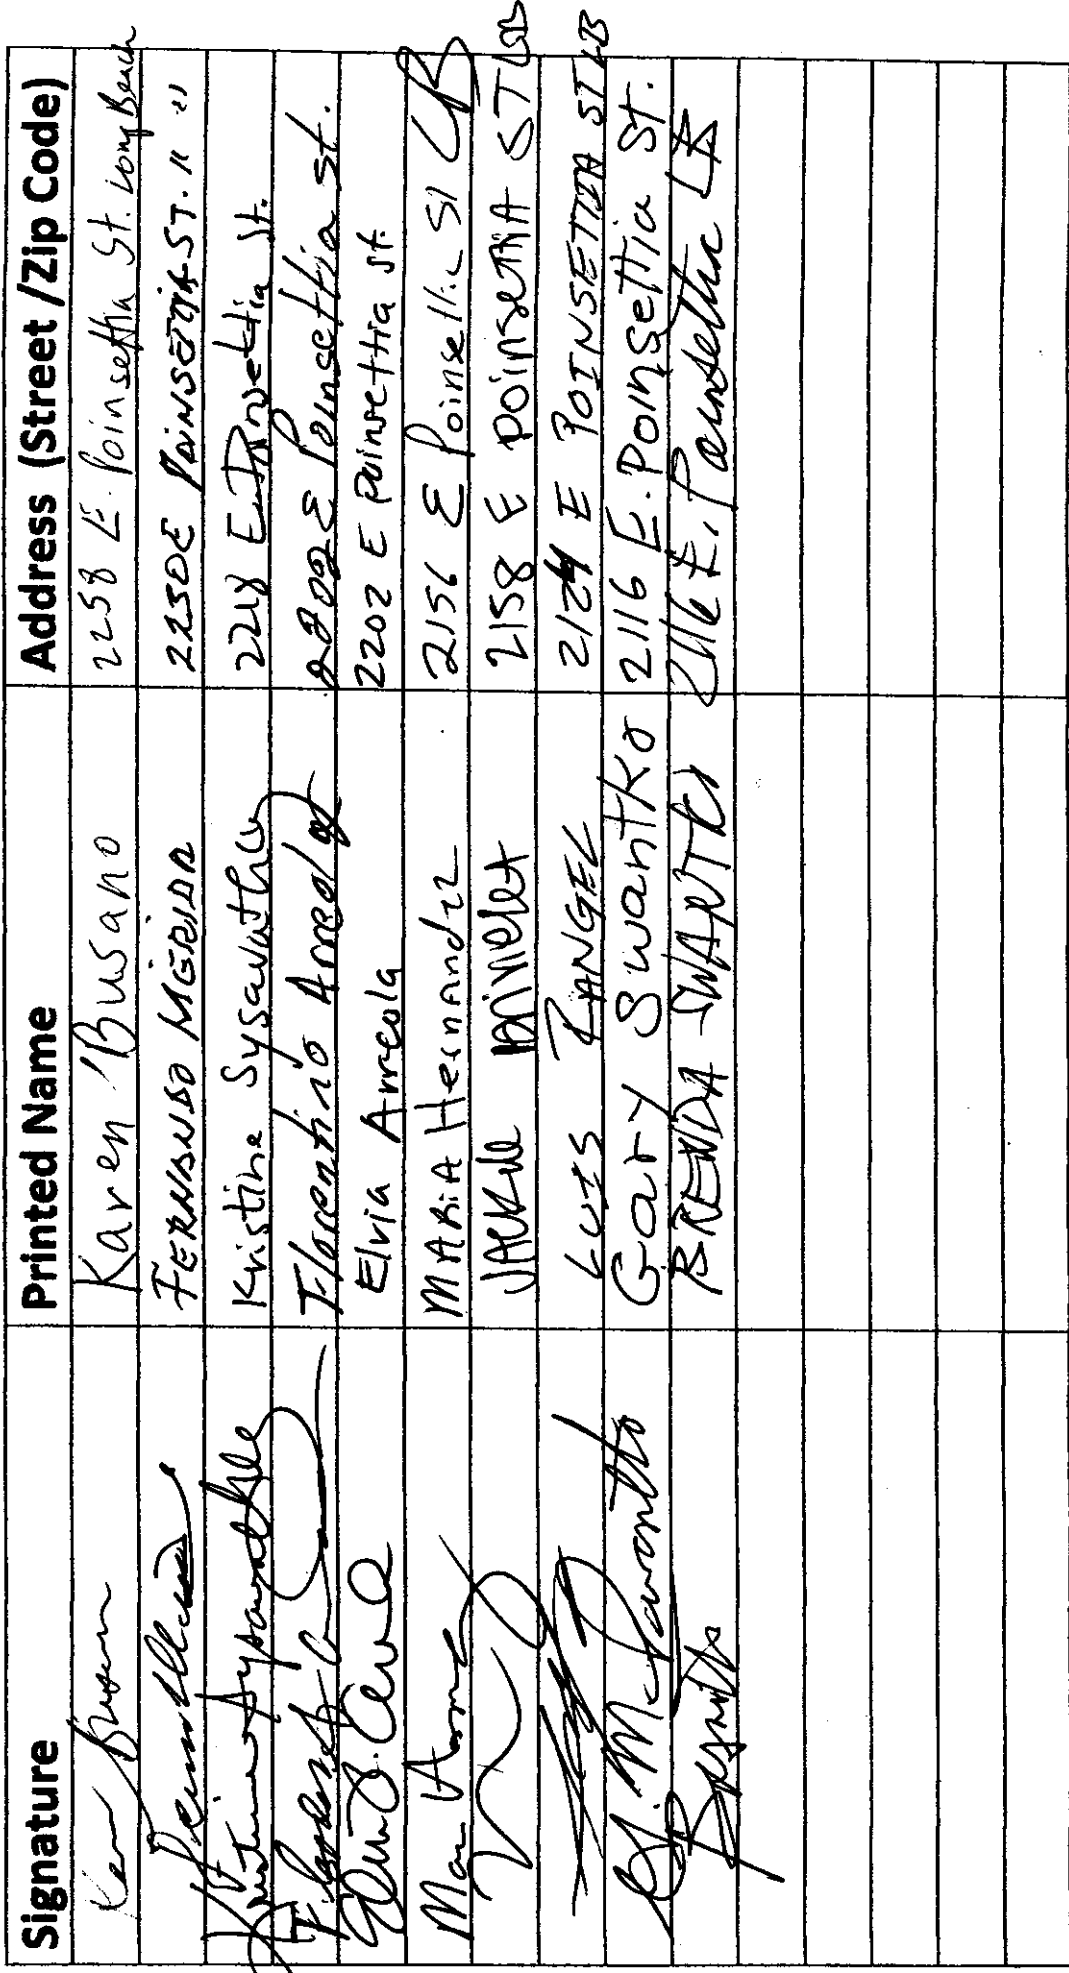 Signature Printed Name Address (Street /Zip Code)
Karen Busano 2258 E. Poinsettia St. Long Beach
FERNANDO MERIDA 2250 E POINSETTIA ST. " "
Kristine Sysavath 2218 E. Poinsettia St.
Florentino Arreola 2202 E Poinsettia St.
Elvia Arreola 2202 E Poinsettia St.
MARIA Hernandz 2156 E Poinsettia St LB
JACKIE 2158 E POINSETTIA ST LB
LUIS RANGEL 2124 E POINSETTIA ST LB
Gary Swantko 2116 E. Poinsettia St.
BRENDA SWANTKO 2116 E. Poinsettia LB